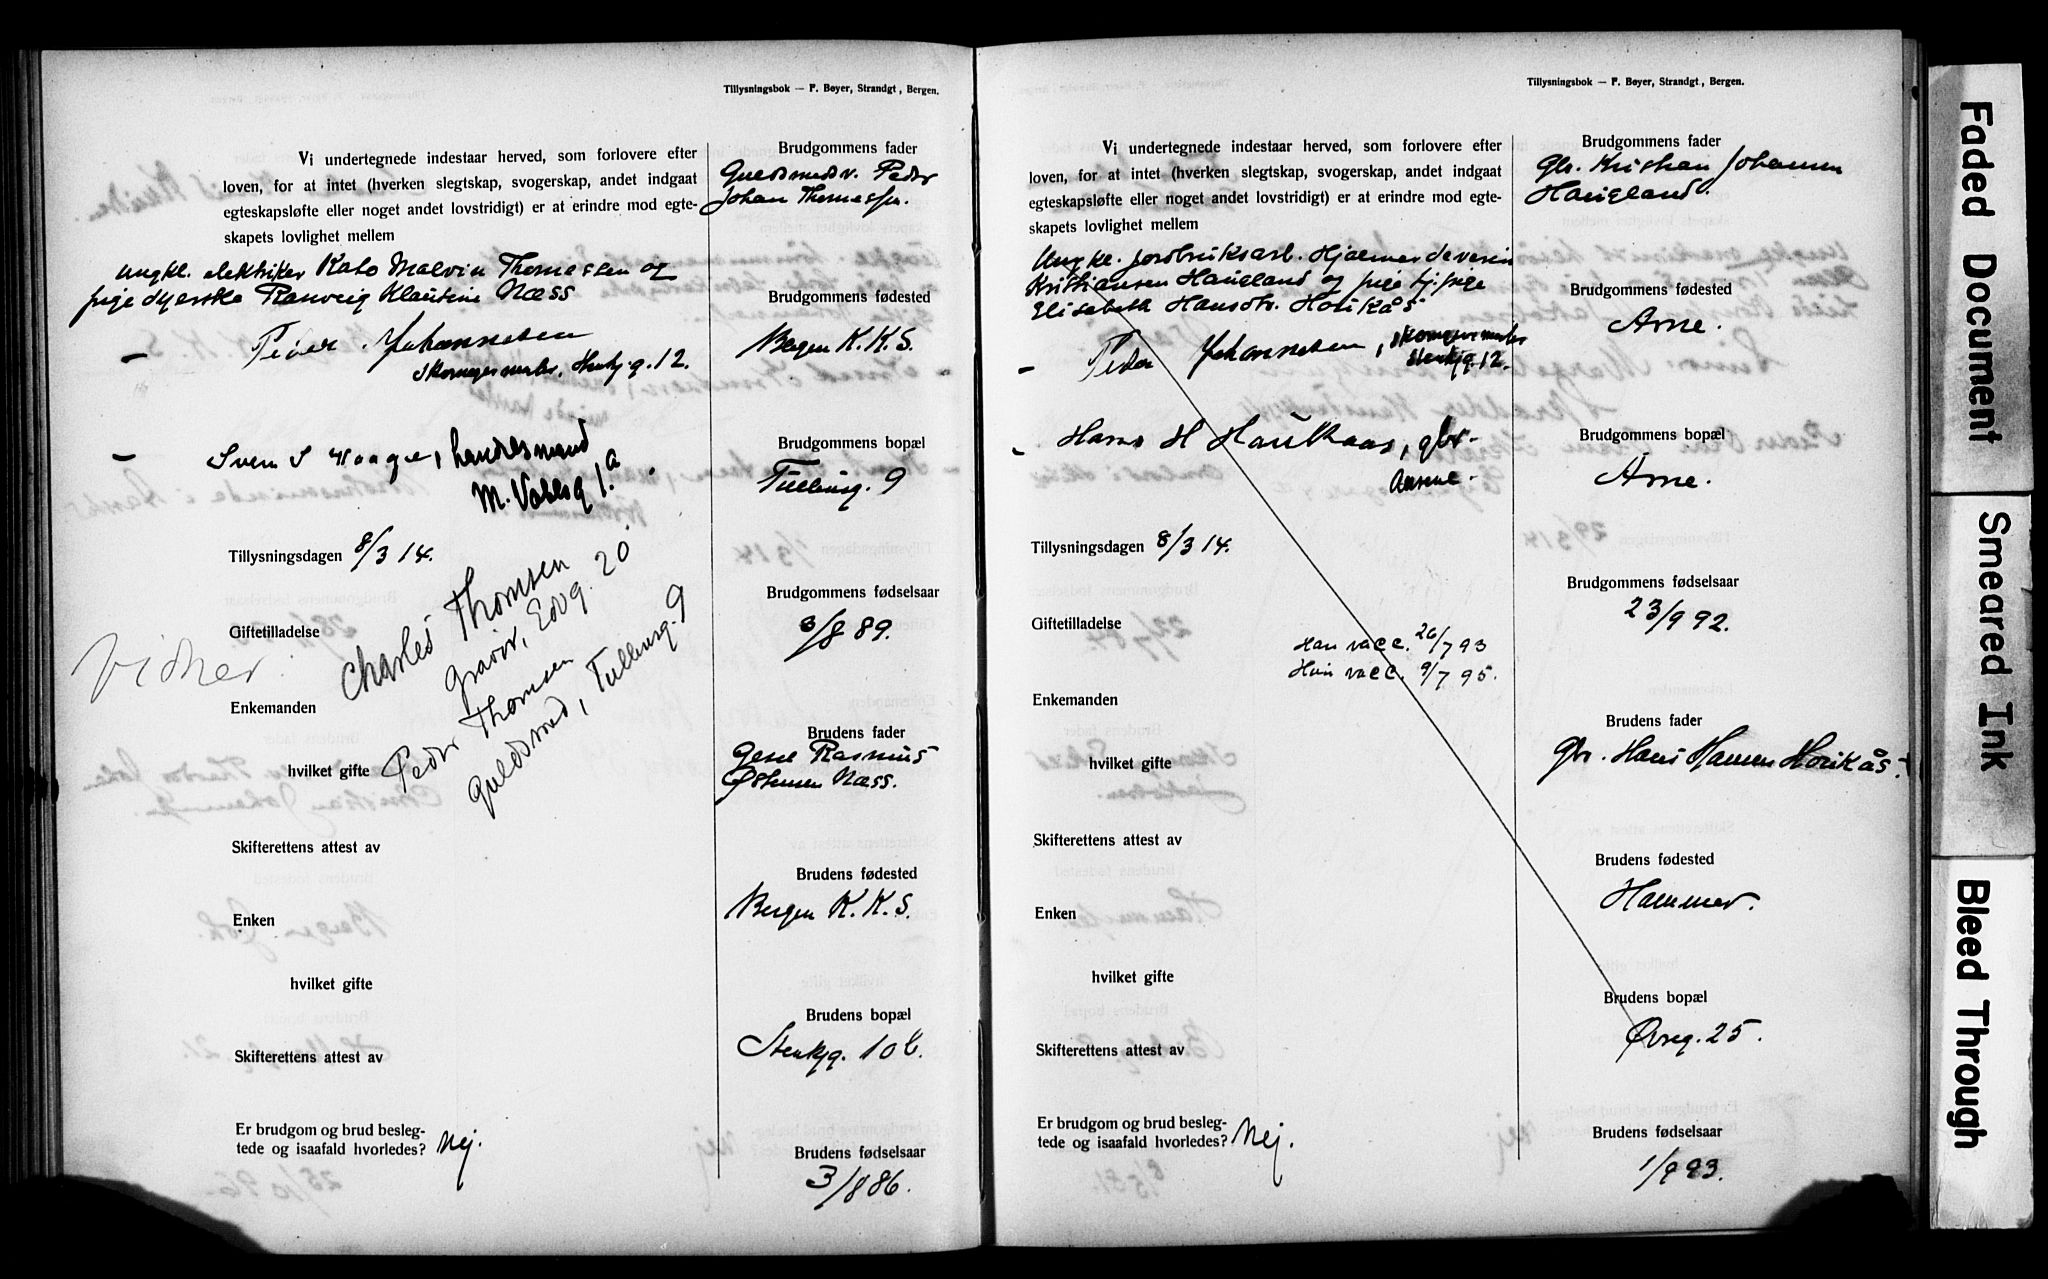 Tillysningsbok — F. Bøyer, Strandgt, Bergen.
Vi undertegnede indestaar herved, som forlovere efter
loven, for at intet (hverken slegtskap, svogerskap, andet indgaat
egteskapsløfte eller noget andet lovstridigt) er at erindre mod egte-
skapets lovlighet mellem
ungkl. elektriker Kato Malvin Thomassen og
pige syerske Ranveig Klausine Næss
Peder Johannesen
skomagermester, 12.
Sven S Haage, handelsmand
M. 1a.
Tillysningsdagen 8/3 14.
Giftetilladelse
Vidner:
Charles Thomsen
gravør, 20
Peder Thomsen
guldsmed, Tullinsg. 9
Enkemanden
hvilket gifte
Skifterettens attest av
Enken
hvilket gifte
Skifterettens attest av
Er brudgom og brud besleg-
tede og isaafald hvorledes? Nej.
Brudgommens fader
Guldsmedsv. Peder
Johan Thomassen.
Brudgommens fødested
Bergen K. K. S.
Brudgommens bopæl
Tullinsg. 9
Brudgommens fødselsaar
3/8 89.
Brudens fader
Rasmus
Næss.
Brudens fødested
Bergen K. K. S.
Brudens bopæl
Stenkjg. 10 b.
Brudens fødselsaar
3/8 86.
Tillysningsbok — F. Bøyer, Strandgt, Bergen.
Vi undertegnede indestaar herved, som forlovere efter
loven, for at intet (hverken slegtskap, svogerskap, andet indgaat
egteskapsløfte eller noget andet lovstridigt) er at erindre mod egte-
skapets lovlighet mellem
Ungkl. jordbruksarb. Hjalmar Severin
Kristiansen Haugland og pige tj.pige
Elisabeth Hansdtr. Houkås
Peder Johannesen, skomagermester
Stenkjg. 12.
Hans H Haukaas, gbr.
Aarne.
Tillysningsdagen 8/3 14.
Giftetilladelse
Han vacc. 26/7 93
Hun vacc. 9/7 95.
Enkemanden
hvilket gifte
Skifterettens attest av
Enken
hvilket gifte
Skifterettens attest av
Er brudgom og brud besleg-
tede og isaafald hvorledes? Nej.
Brudgommens fader
Gbr. Kristian Johansen
Haugland.
Brudgommens fødested
Arne.
Brudgommens bopæl
Arne.
Brudgommens fødselsaar
23/9 92.
Brudens fader
Gbr. Hans Hansen Houkås.
Brudens fødested
Hammer.
Brudens bopæl
Øvreg. 25.
Brudens fødselsaar
1/9 93.
Faded Document
Smeared Ink
Bleed Through